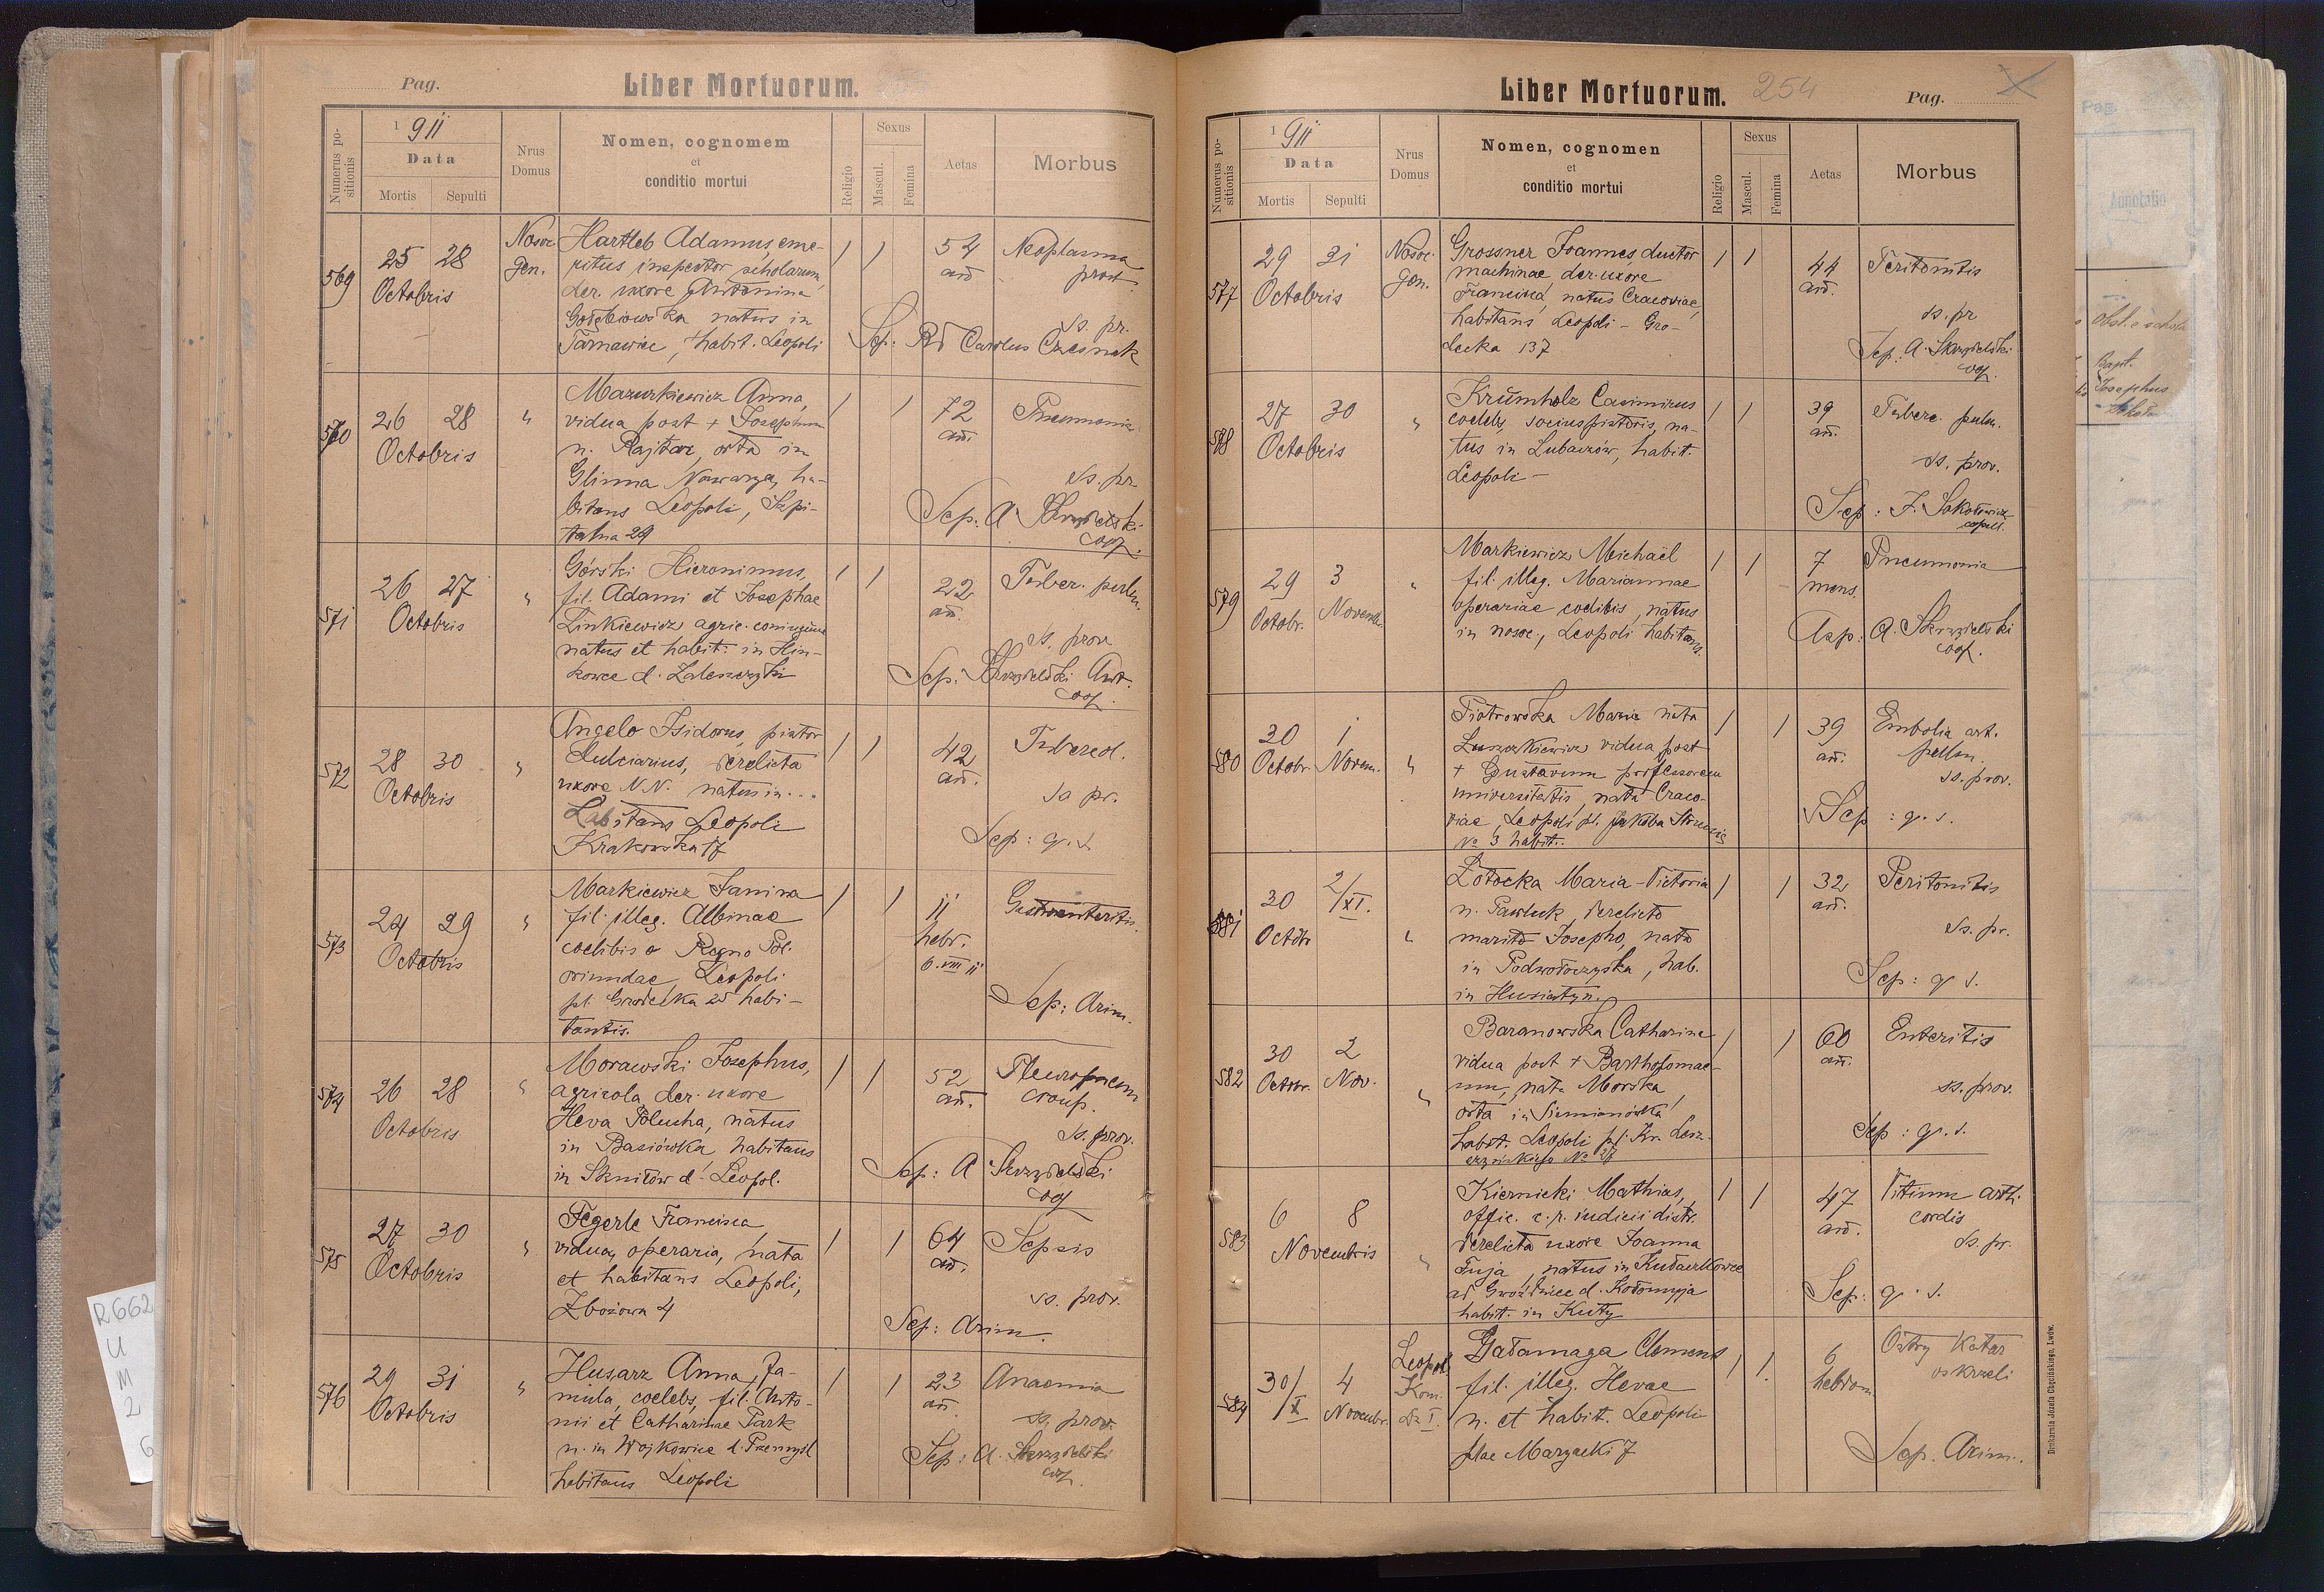 Pag.
Liber Mortuorum.
Numerus positionis
1911
Data
Mortis
Sepulti
Nrus Domus
Nomen, cognomem
et
conditio mortui
Religio
Sexus
Mascul.
Femina
Aetas
Morbus
569
25 28
Octobris
Nosoc.
gen.
Hartleb Adamus, eme-
ritus inspector scholarum,
der. uxore Antonina
Gołębiowska natus in
Tarnawice, habit. Leopoli
1 1
54
an.
Neoplasma
prost.
ss. pr.
Sep: Rd Carolus Czesnak
570
26 28
Octobris
"
Mazurkiewicz Anna,
vidua post + Josephum
n. Rajtar, orta in
Glinna Nawarya, ha-
bitans Leopoli, Szpi-
talna 29
1 1
72
an.
Pneumonia
ss. pr.
Sep: A Skrzydelski
coop.
571
26 27
Octobris
"
Górski Hieronimus,
fil. Adami et Josephae
Linkiewicz agric. coniugum
natus et habit. in Hin-
kowce d. Zaleszczyki
1 1
22
an.
Tuber. pulm.
ss. prov
Sep: Skrzydelski Ant.
coop.
572
28 30
Octobris
"
Angelo Isidorus, pistor
dulciarius, derelicta
uxore N.N. natus in...
habitans Leopoli
Krakowska 17
1 1
42
an.
Tubercul.
ss pr.
Sep: q. s.
573
24 29
Octobris
"
Markiewicz Janina
fil. illeg. Albinae
coelibis e Regno Pol.
oriundae Leopoli
pl. Gródecka 25 habi-
tantis.
1 1
11
hebr.
6. VIII 11
Gastroenteritis.
Sep: Arim.
574
26 28
Octobris
"
Morawski Josephus,
agricola der. uxore
Heva Polucha, natus
in Basiówka habitans
in Skniłów d. Leopol.
1 1
52
an.
Pleuropneum
croup.
ss. prov.
Sep: A Skrzydelski
coop
575
27 30
Octobris
"
Fegerle Francisca
vidua, operaria, nata
et habitans Leopoli,
Zbożowa 4
1 1
64
an.
Sepsis
ss. prov.
Sep: Arim.
576
29 31
Octobris
"
Husarz Anna, fa-
mula, coelebs, fil. Anto-
nii et Catharinae Park
n. in Wojkowice d. Przemyśl
habitans Leopoli
1 1
23
an.
Anaemia
ss. prov.
Sep: A. Skrzydelski
coop.
Liber Mortuorum. 254
Pag.
Numerus positionis
1911
Data
Mortis
Sepulti
Nrus Domus
Nomen, cognomen
et
conditio mortui
Religio
Sexus
Mascul.
Femina
Aetas
Morbus
577
29 31
Octobris
Nosoc.
gen.
Grossner Joannes, ductor
machinae der. uxore
Francisca, natus Cracoviae,
habitans Leopoli - Gró-
decka 137
1 1
44
an.
Peritonitis
ss. pr
Sep: A. Skrzydelski
coop.
578
27 30
Octobris
"
Krümholz Casimirus
coelebs, socius pistoris, na-
tus in Lubaczów, habit.
Leopoli -
1 1
39
an.
Tuberc. pulm.
ss. prov.
Sep: J. Sokołowicz
capell.
579
29 3
Octobr. Novemb.
"
Markiewicz Michaël
fil. illeg. Mariannae
operariae coelibis, natus
in nosoc., Leopoli habitans.
1 1
7
mens.
Pneumonia
Sep: A. Skrzydelski
coop.
580
30 1
Octobr. Novem.
"
Piotrowska Maria nata
Łuszczkiewicz vidua post
+ Gustavum professorem
universitatis, nata Craco-
viae, Leopoli pl. Jakóba Strzemię
No 3 habit.
1 1
39
an.
Embolia art.
pulm.
ss. prov.
Sep: q. s.
581
30 2/XI.
Octobr
"
Łotocka Maria-Victoria
n. Pawluk, derelicto
marito Josepho, nata
in Podwołoczyska, hab.
in Husiatyn.
1 1
32
an.
Peritonitis
ss. pr.
Sep: q s.
582
30 2
Octobr. Nov.
"
Baranowska Catharina
vidua post + Bartholomae-
um, nata Morska,
orta in Siemianówka,
habit. Leopoli
No 27
1 1
60
an.
Enteritis
ss. prov.
Sep: q. s.
583
6 8
Novembris
"
Kiernicki Mathias,
offic. c. r. iudicii distr.
derelicta uxore Joanna
Tuja, natus in Kułaczkowce
ad Gwoździec d. Kołomyja
habit. in Kuty
1 1
47
an.
Vitium arth.
cordis
ss. pr.
Sep: q. s.
584
30/X 4
Novembr.
Leopol
Kom.
Dz I.
Gałamaga Clemens
fil. illeg. Hevae
n. et habit. Leopoli
plac Maryacki 7
1 1
6
hebdom.
Ostry katar
oskrzeli
Sep. Arim.
Drukarnia Józefa Chęcińskiego, Lwów.
Pag.
Annotatio
Bapt.
Josephus
R662
U
M
2
6